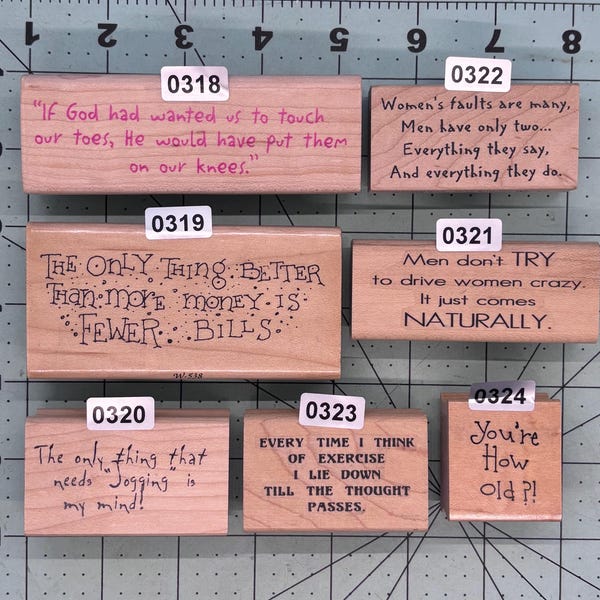 1 2 3 4 5 6 7 8
0318
"If God had wanted us to touch
our toes, He would have put them
on our knees."
0322
Women's faults are many,
Men have only two...
Everything they say,
And everything they do.
0319
THE ONLY THING BETTER
THAN MORE MONEY IS
FEWER BILLS
W-538
0321
Men don't TRY
to drive women crazy.
It just comes
NATURALLY.
0320
The only thing that
needs "Jogging" is
my mind!
0323
EVERY TIME I THINK
OF EXERCISE
I LIE DOWN
TILL THE THOUGHT
PASSES.
0324
You're
How
Old?!